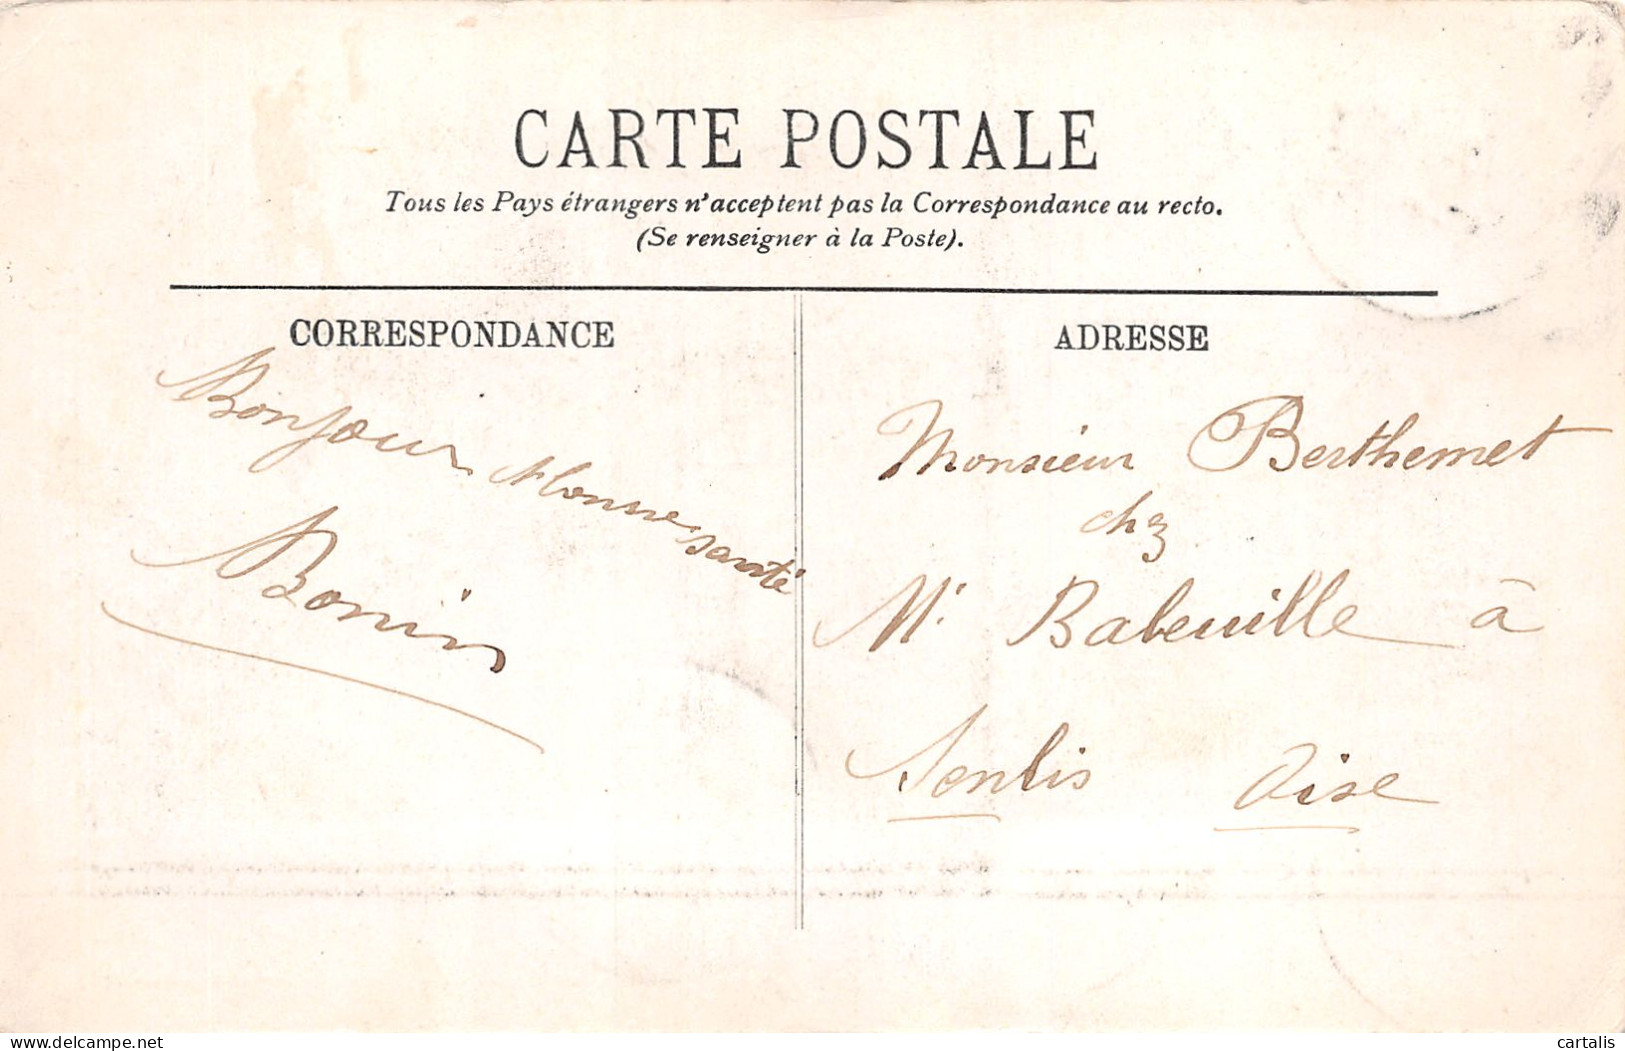 CARTE POSTALE
Tous les Pays étrangers n'acceptent pas la Correspondance au recto.
(Se renseigner à la Poste).
CORRESPONDANCE
Bonjour Bonne santé
Bonin
ADRESSE
Monsieur Berthemet
chz
Mr Babeuille à
Senlis Oise
www.delcampe.net
cartalis